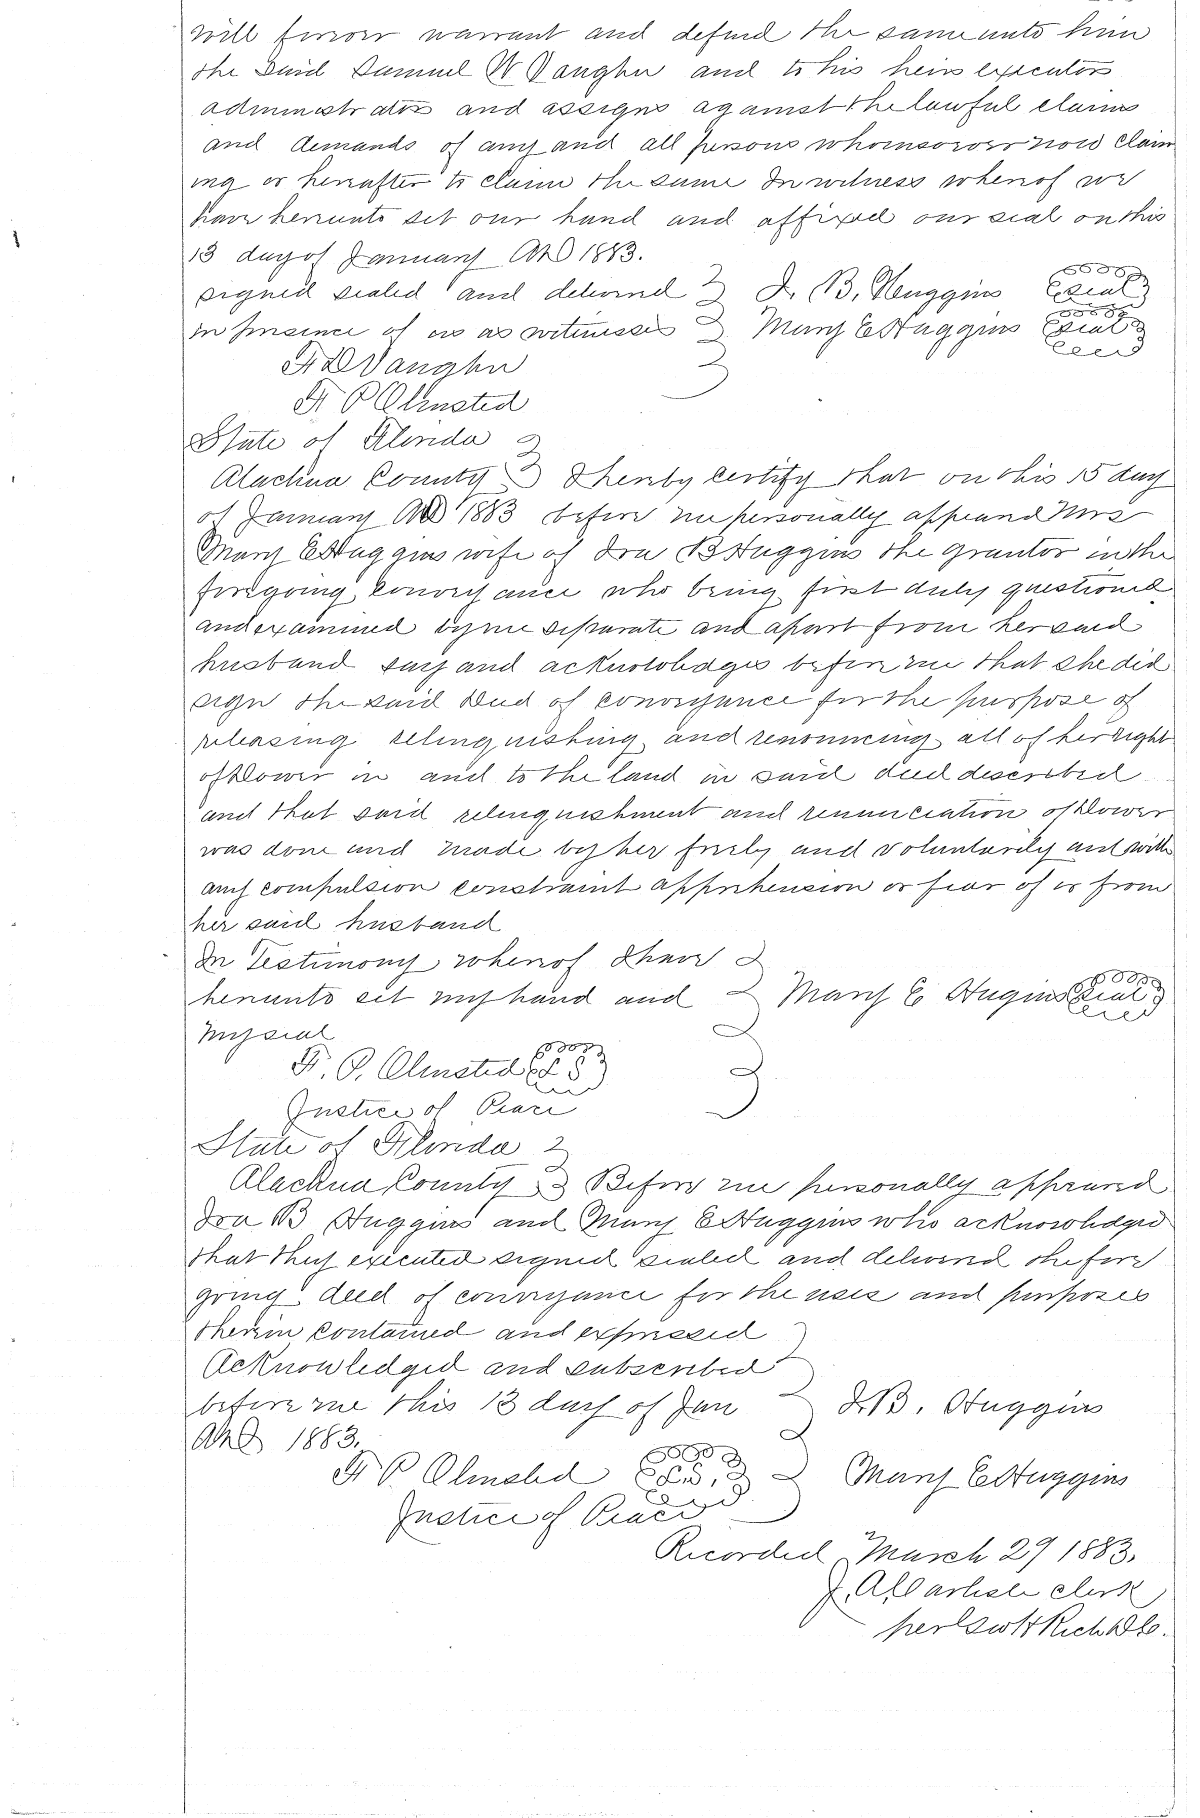 will forever warrant and defend the same unto him
the said Samuel W Vaughn and to his heirs executors
administrators and assigns against the lawful claims
and demands of any and all persons whomsoever now claim
ing or hereafter to claim the same In witness whereof we
have hereunto set our hand and affixed our seal on this
13 day of January AD 1883.
signed sealed and delivered I. B. Huggins Seal
in presence of us as witnesses Mary E Huggins Seal
Vaughn
F P Olmsted
State of Florida
Alachua County I hereby certify that on this 15 day
of January AD 1883 before me personally appeared Mrs
Mary E Huggins wife of Ira B Huggins the grantor in the
foregoing conveyance who being first duly questioned
and examined by me separate and apart from her said
husband say and acknowledges before me that she did
sign the said Deed of conveyance for the purpose of
releasing relinquishing and renouncing all of her right
of Dower in and to the land in said deed described
and that said relinquishment and renunciation of Dower
was done and made by her freely and voluntarily and with
any compulsion constraint apprehension or fear of or from
her said husband
In Testimony whereof I have
hereunto set my hand and Mary E Hugins Seal
my seal
F. P. Olmsted L S
Justice of Peace
State of Florida
Alachua County Before me personally appeared
Ira B Huggins and Mary E Huggins who acknowledged
that they executed signed sealed and delivered the fore
going deed of conveyance for the uses and purposes
therein contained and expressed
Acknowledged and subscribed
before me this 13 day of Jan I. B. Huggins
AD 1883.
F P Olmsted L S. Mary E Huggins
Justice of Peace
Recorded March 29 1883.
J. A. Carlisle clerk
per Rich DC.